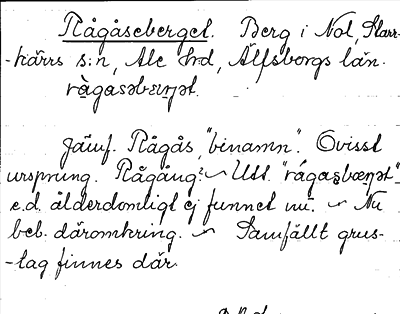 Rågåseberget. Berg i Nol, Starr-
-kärrs s:n, Ale hd, Älfsborgs län.
rågasəbæɲət.
Jämf. Rågås, "binamn". Ovisst
ursprung. Rågång? ~ Utt. "rågasbæɲət"
e.d. ålderdomligt ej funnet nu. ~ Nu
beb. däromkring. ~ Samfällt grus-
-tag finnes där